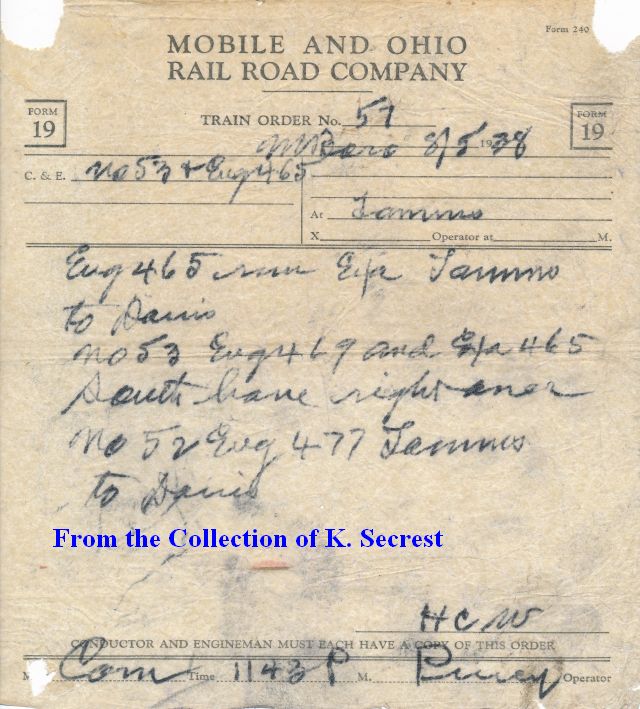 Form 240
MOBILE AND OHIO
RAIL ROAD COMPANY
FORM 19
TRAIN ORDER No. 57
FORM 19
M'Boro 8/5 1938
C. & E. No 53 & Eng 465
At Tamms
X Operator at M.
Eng 465 run Exa Tamms
to Davis
No 53 Eng 469 and Exa 465
South have right over
No 52 Eng 477 Tamms
to Davis
From the Collection of K. Secrest
HCW
CONDUCTOR AND ENGINEMAN MUST EACH HAVE A COPY OF THIS ORDER
M Com Time 1143 P M. Operator